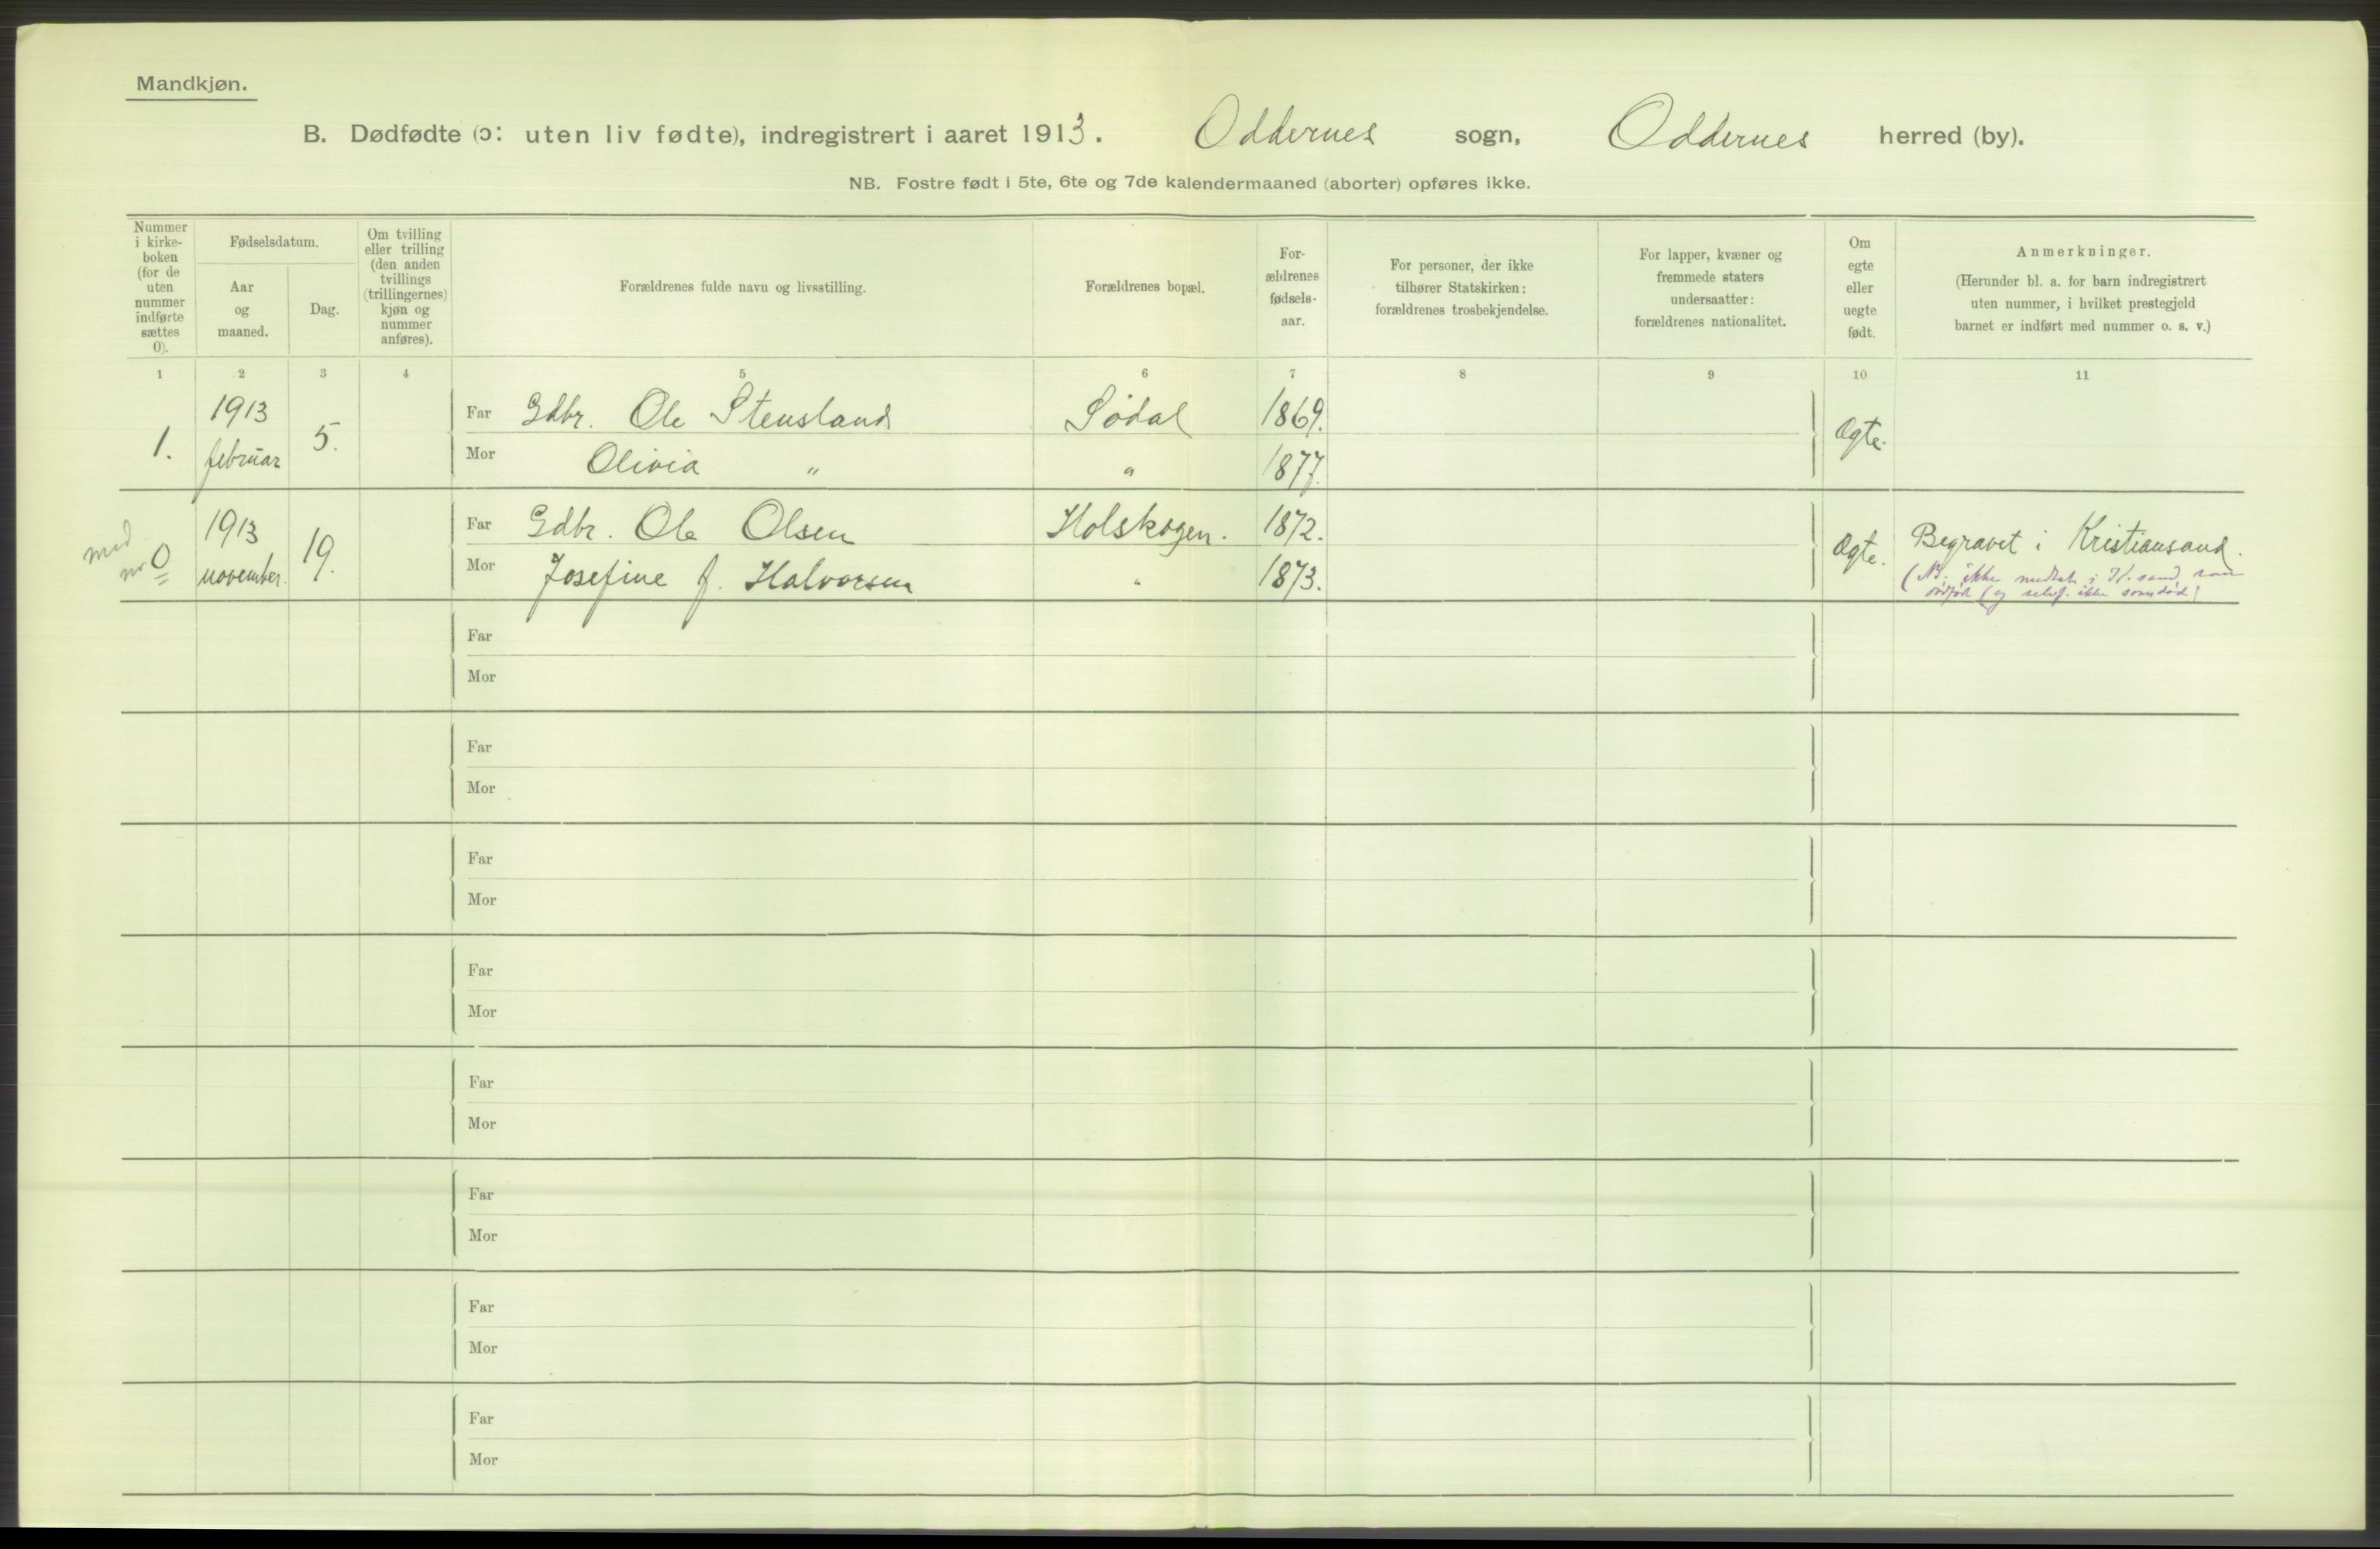 Mandkjøn.
B. Dødfødte (ɔ: uten liv fødte), indregistrert i aaret 1913. Oddernes sogn, Oddernes herred (by).
NB. Fostre født i 5te, 6te og 7de kalendermaaned (aborter) opføres ikke.
Nummer
i kirke-
boken
(for de
uten
nummer
indførte
sættes
0).
Fødselsdatum.
Aar
og
maaned.
Dag.
Om tvilling
eller trilling
(den anden
tvillings
(trillingernes)
kjøn og
nummer
anføres).
Forældrenes fulde navn og livsstilling.
Forældrenes bopæl.
For-
ældrenes
fødsels-
aar.
For personer, der ikke
tilhører Statskirken:
forældrenes trosbekjendelse.
For lapper, kvæner og
fremmede staters
undersaatter:
forældrenes nationalitet.
Om
egte
eller
uegte
født.
Anmerkninger.
(Herunder bl. a. for barn indregistrert
uten nummer, i hvilket prestegjeld
barnet er indført med nummer o. s. v.)
1 2 3 4 5 6 7 8 9 10 11
1. 1913 februar 5.
Far Gdbr. Ole Stensland Sødal 1869.
Mor Olivia " " 1877.
Ægte.
med
nr 0 1913 november. 19.
Far Gdbr. Ole Olsen Holskogen. 1872.
Mor Josefine J. Halvorsen " 1873.
Ægte.
Begravet i Kristiansand.
(NB. ikke medtat i K.sand som
dødfødt (og selvf. ikke som død)
Far
Mor
Far
Mor
Far
Mor
Far
Mor
Far
Mor
Far
Mor
Far
Mor
Far
Mor